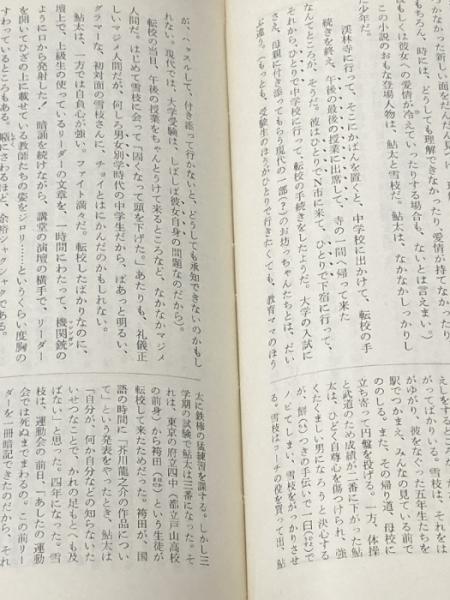 かなかった新しい面を
なかったり、愛情が持てなかった
もしくは彼女への愛情が冷えていったりする場合も、ないとは言えまい。)
もちろん、時には、どうしても理解できなかったり
この小説のおもな登場人物は、鮎太と雪枝だ。鮎太は、なかなかしっかりし
た少年だ。
渓林寺に行って、そこにかばんを置くと、中学校に出かけて、転校の手
続きを終え、午後の最後の授業に出席して、寺の一間へ帰って来た
なんてところが、そうだ。彼はひとりでN市に来て、ひとりで下宿に行って、
それから、ひとりで中学校に行って、転校の手続きをしたようだ。大学の入試に
さえ、母親に付き添ってもらう現代の一部(?)のお坊っちゃんたちとは、だい
ぶ違う。(もっとも、受験生のほうがひとりで行きたくても、教育ママのほう
が、ハッスルして、付き添って行かないと、どうしても承知できないのかもし
れない。現代では、大学受験は、しばしば彼女自身の問題なのだから)。
転校の当日、午後の授業をちゃんとうけて来るところなど、なかなかマジメ
人間だ。はじめて雪枝に会って「固くなって頭を下げた。」あたりも、礼儀正
しいマジメ人間だが、何しろ男女別学時代の中学生だから、ぱあっと明るい、
グラマーな、初対面の雪枝さんに、チョイとはにかんだのかもしれない。
鮎太は、一方では自負心が強い。ファイト満々だ。転校したばかりなのに、
壇上で、上級生の使っているリーダーの文章を、一時間にわたって、機関銃の
ように口から発射した！暗誦を続けながら、講堂の演壇の横手で、リーダー
を開いてひざの上に載せている教師たちの姿をジロリ……というくらい度胸の
すわっているところもある。癪にさわるほど、余裕シャクシャクである。
えしをする
がってばかりる。雪枝は、それをは
がゆがり、彼をなぐった五年生たちを
駅でつかまえ、みんなの見ている前で
ののしる。また、その帰り道、母校に
立ち寄って円盤を投げる。一方、体操
と武道のため成績が二番に下がった鮎
太は、ひどく自尊心を傷つけられ、強
くたくましい男になろうと決心する
が、餅つきの手伝いで一臼
ノビてしまい、雪枝をがっかりさせ
る。雪枝はコーチの役を買って出、鮎
太に鉄棒の猛練習を課する。しかし三
学期の試験で鮎太は三番になった。そ
れは、東京の府立四中（都立戸山高校
の前身）から袴田という生徒が
転校して来たためだった。袴田が、国
語の時間に「芥川龍之介の作品につい
て」という発表をやったとき、鮎太は
「自分が、何か自分などの知らないた
いせつなことで、かれの足もとへも及
ばない」と思った。四年になった。雪
枝は、運動会の前日、「あしたの運動
会では死ぬまでまわるの。この前リー
ダーを一冊暗記できたのだから、それ